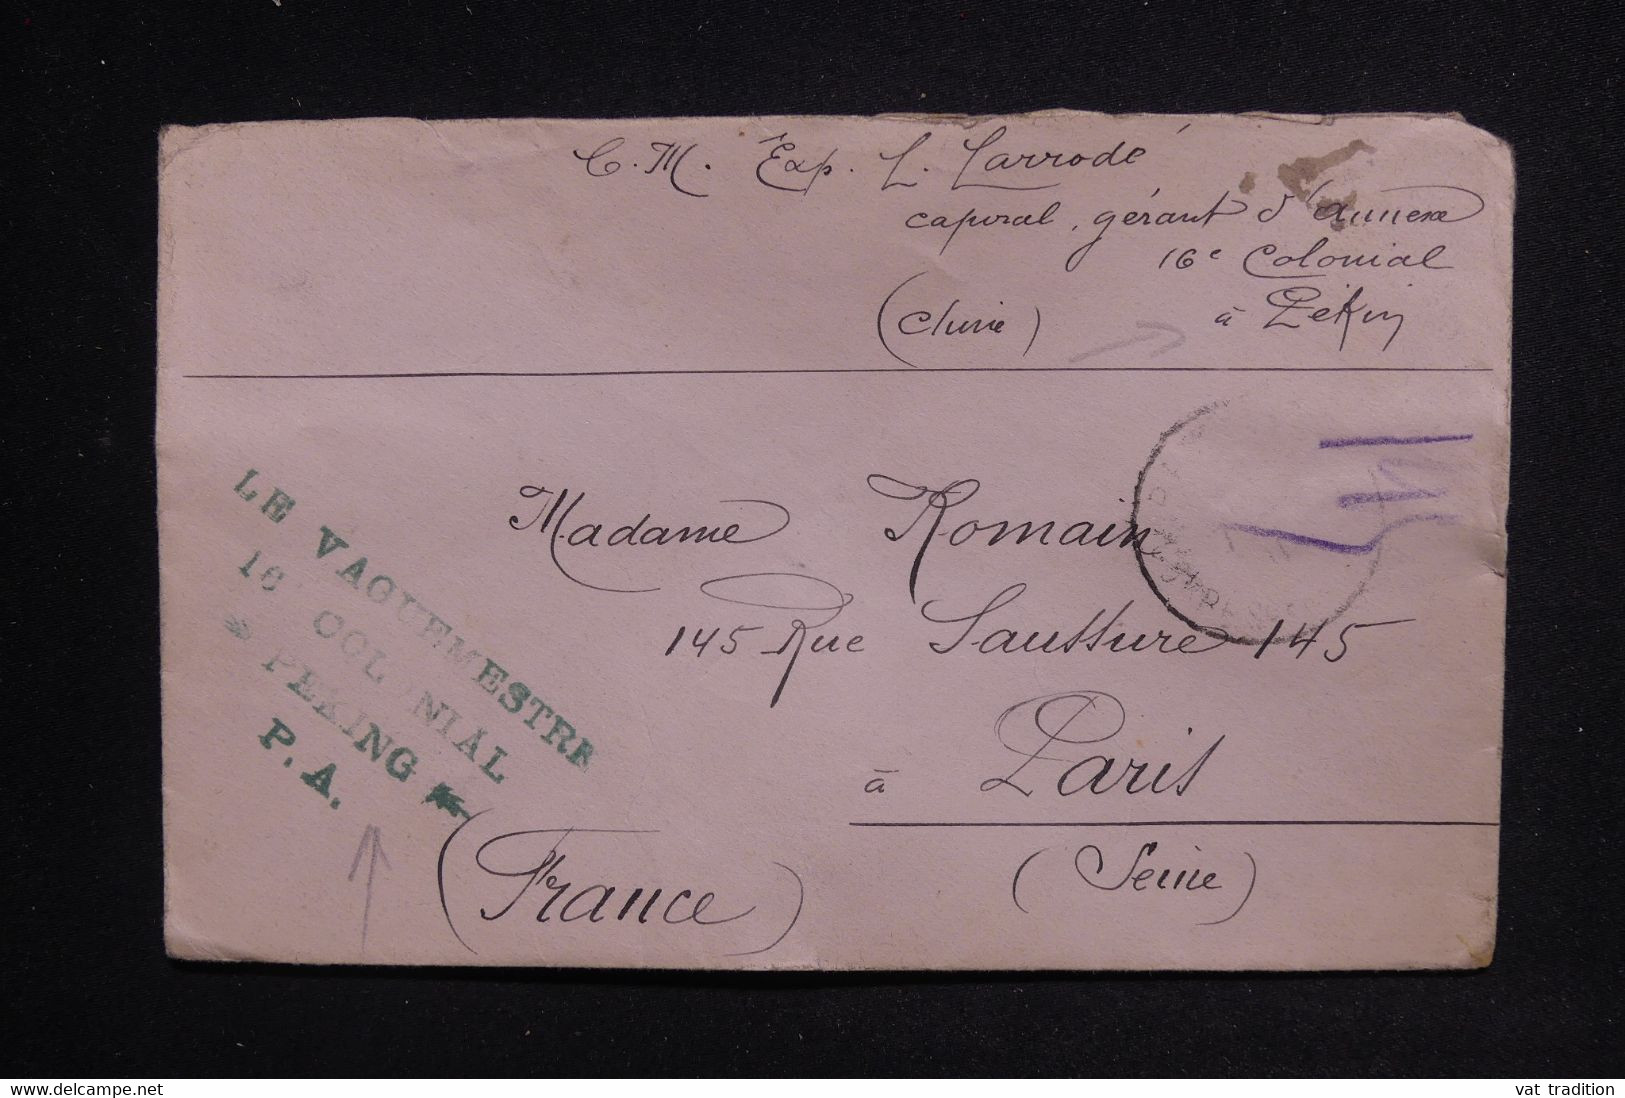 C. M. Exp. L. Larrodé
caporal, gérant d'annexe
16e Colonial
(Chine) à Pékin
LE VAQUEMESTRE
16 COLONIAL
PEKING
P. A.
Madame Romain
145 Rue Saussure 145
à Paris
(Seine)
(France)
www.delcampe.net
vat tradition